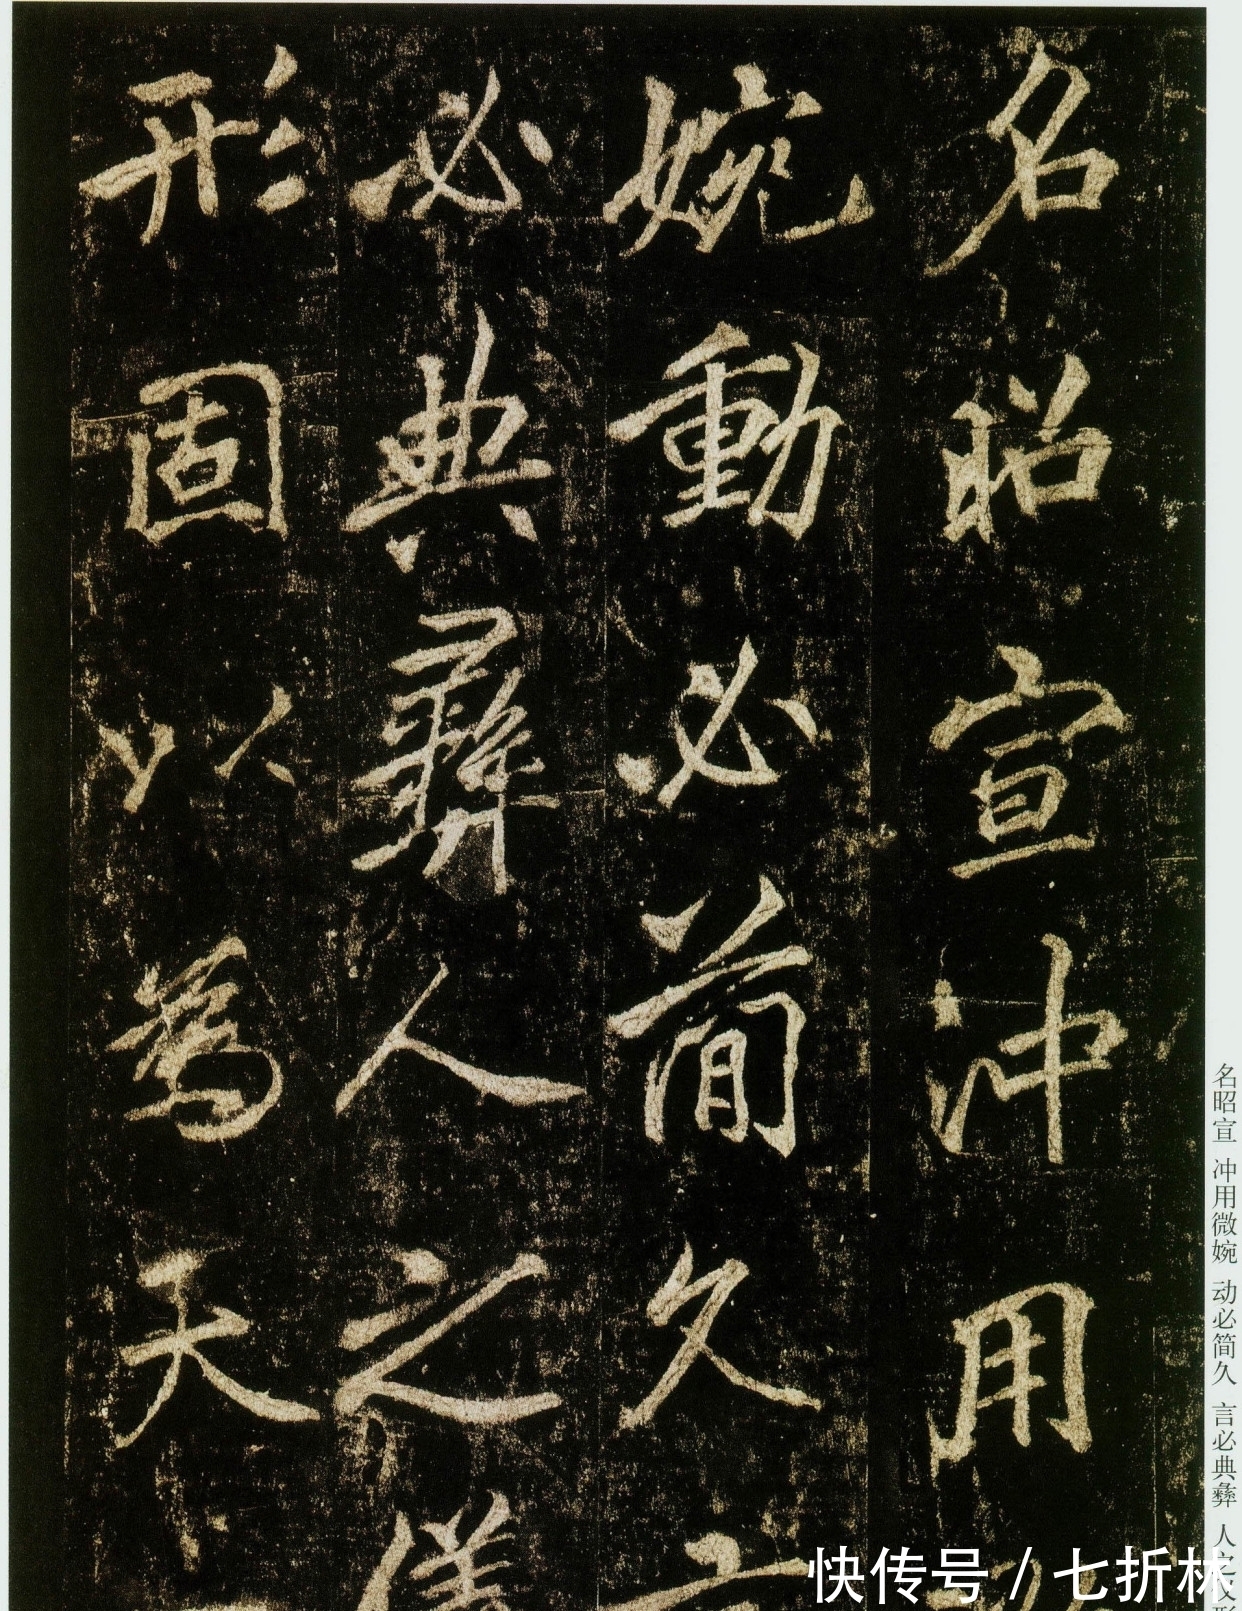 名昭宣冲用
婉動必简久
必典彝人之儀
形固以為天
名昭宣 冲用微婉 动必简久 言必典彝 人之
快传号 / 七折林